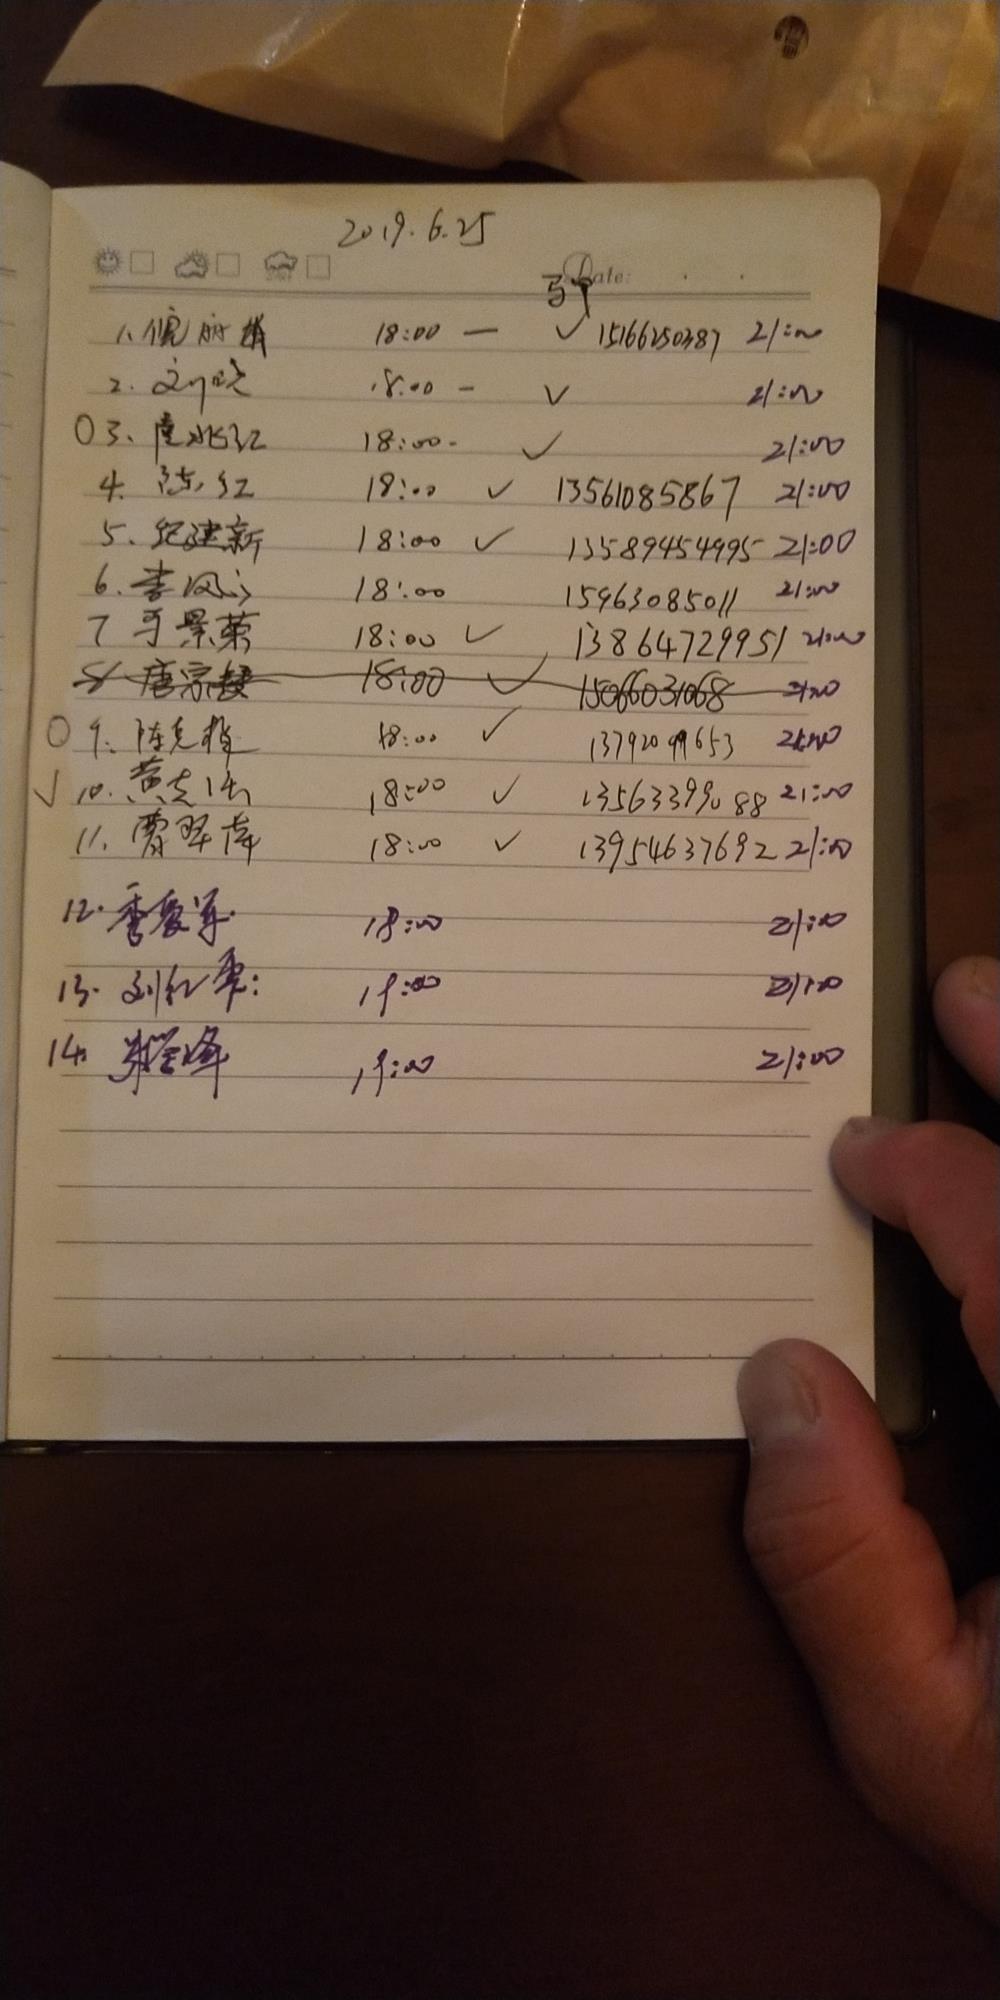 2019.6.25
Date:
1. 18:00 — ✓ 15166250387 21:00
2. 刘晓 18:00 - ✓ 21:00
3. 18:00 - ✓ 21:00
4. 陈红 18:00 ✓ 13561085867 21:00
5. 纪建新 18:00 ✓ 13589454995 21:00
6. 李风 18:00 15963085011 21:00
7 于景荣 18:00 ✓ 13864729951 21:00
8 唐宗 18:00 ✓ 15066031068 21:00
9. 陈克 18:00 ✓ 13792099653 21:00
✓ 10. 黄志 18:00 ✓ 13563399088 21:00
11. 贾翠萍 18:00 ✓ 13954637692 21:00
12. 季爱军 18:00 21:00
13. 刘红 19:00 21:00
14. 19:00 21:00